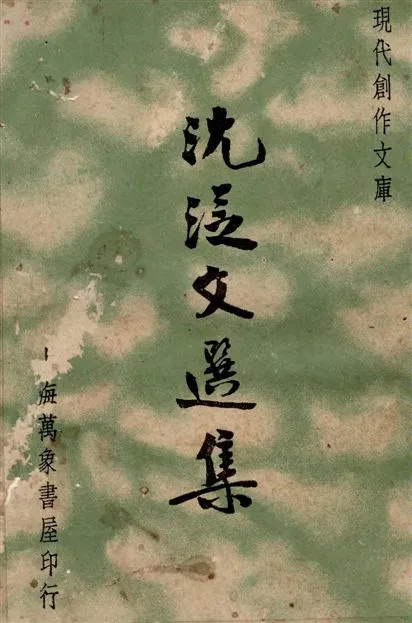 現代創作文庫
沈從文選集
海萬象書屋印行